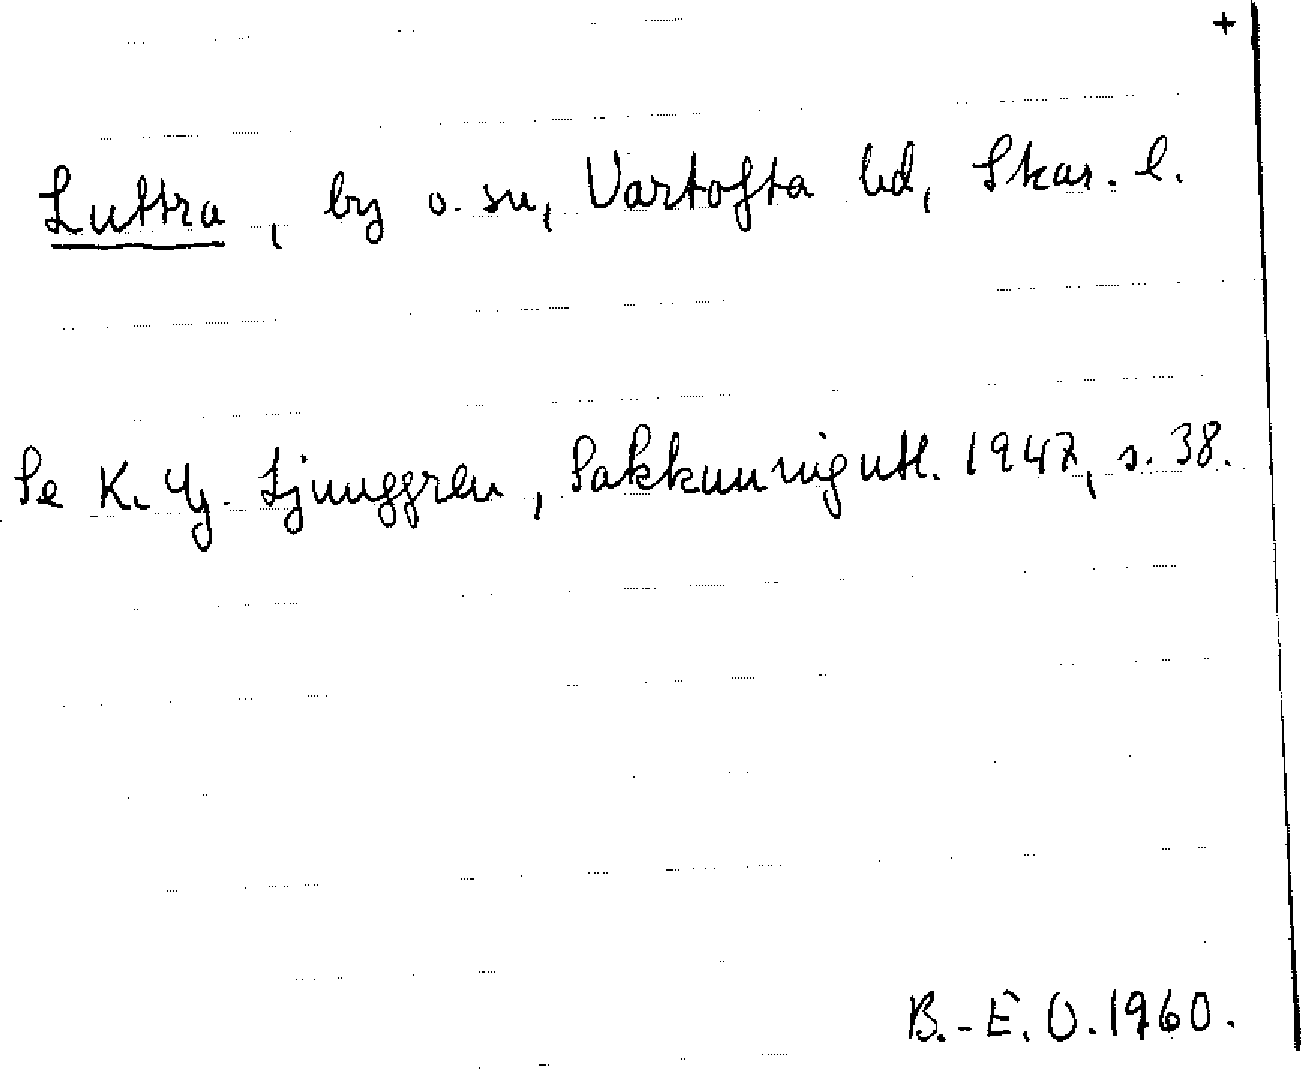 +
Luttra, by o. sn, Vartofta hd, Skar. l.
Se K. G. Ljunggren, Sakkunnigutl. 1947, s. 38.
B.-E. O. 1960.